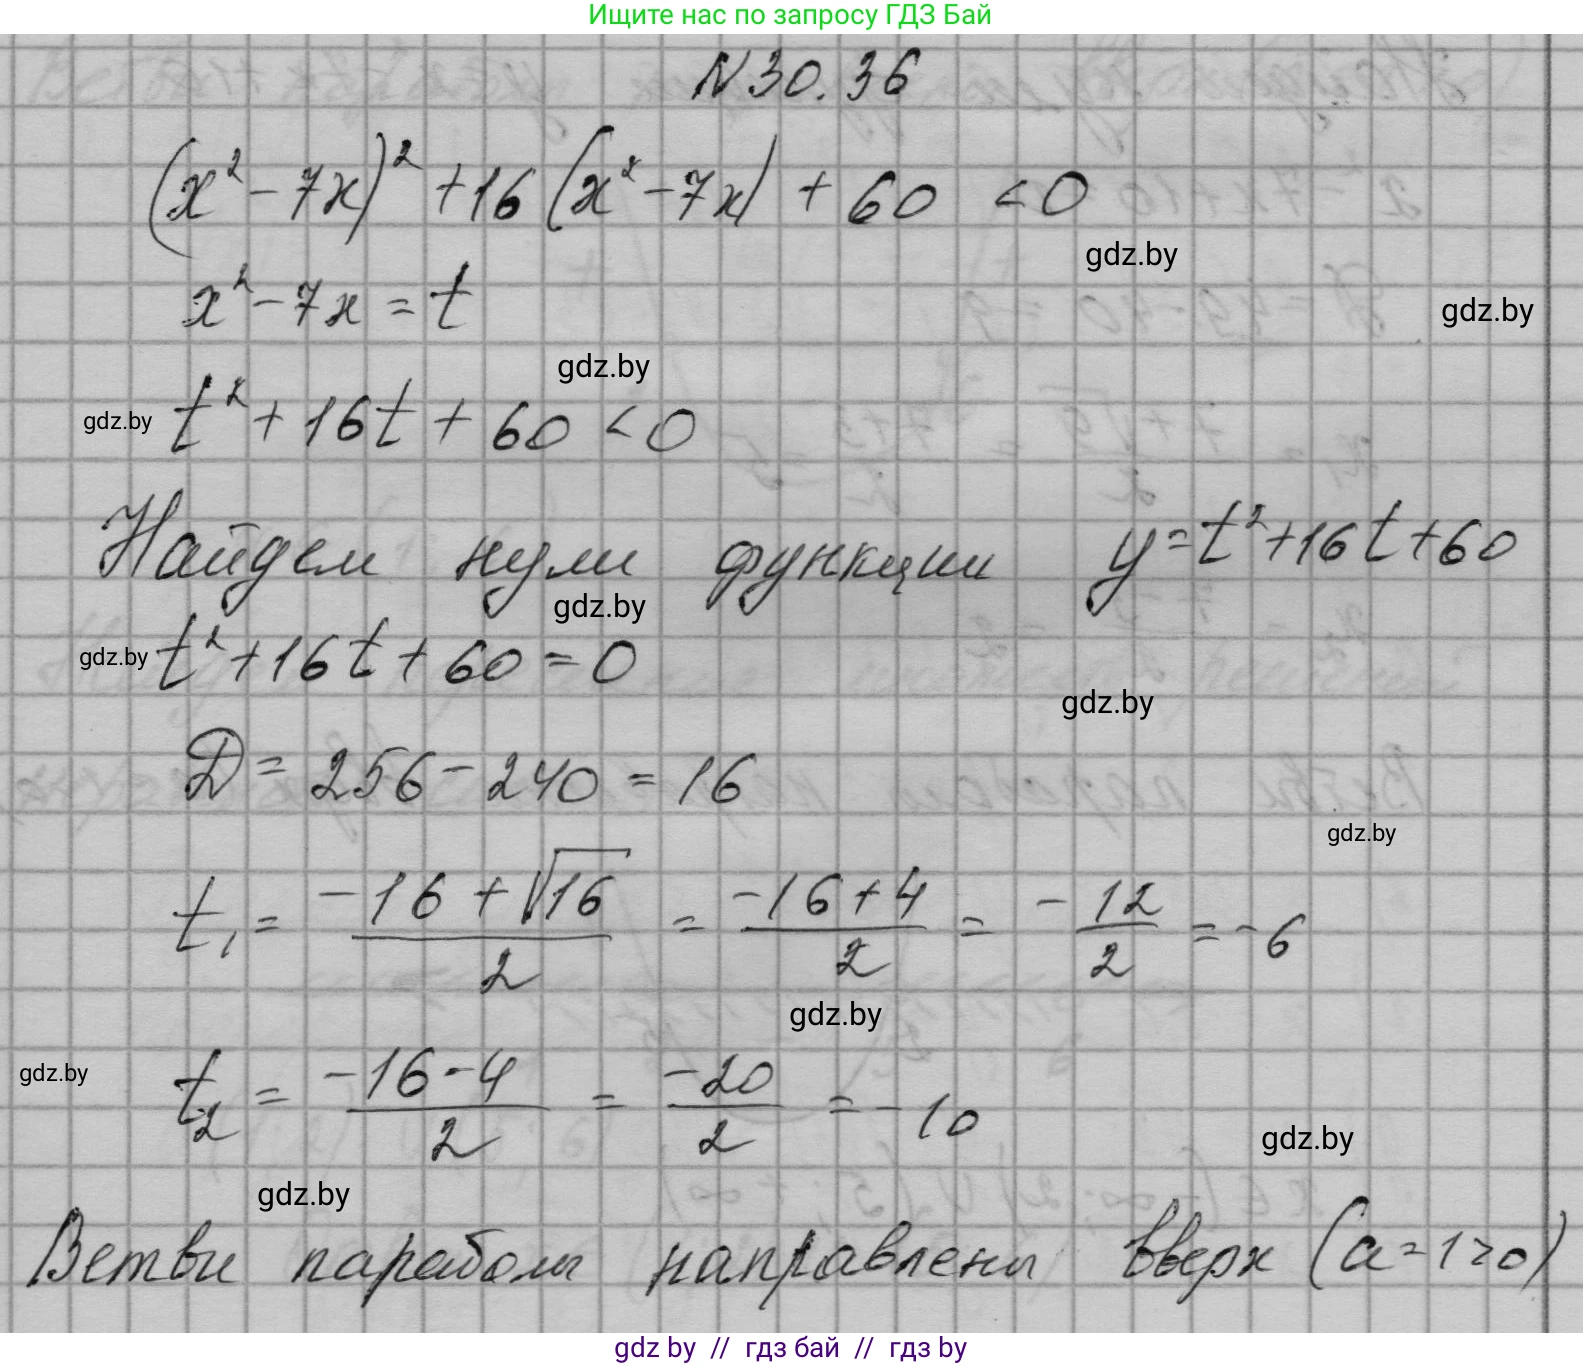 Ищите нас по запросу ГДЗ Бай
N 30.36
(x² - 7x)² + 16 (x² - 7x) + 60 < 0
gdz.by
x² - 7x = t
gdz.by
gdz.by
gdz.by t² + 16t + 60 < 0
Найдем нули функции y = t² + 16t + 60
gdz.by
gdz.by t² + 16t + 60 = 0
gdz.by
D = 256 - 240 = 16
gdz.by
t₁ = (-16 + √16)/2 = (-16 + 4)/2 = -12/2 = -6
gdz.by
gdz.by t₂ = (-16 - 4)/2 = -20/2 = -10
gdz.by
gdz.by
Ветви параболы направлены вверх (a = 1 > 0)
gdz by // гдз бай // gdz by